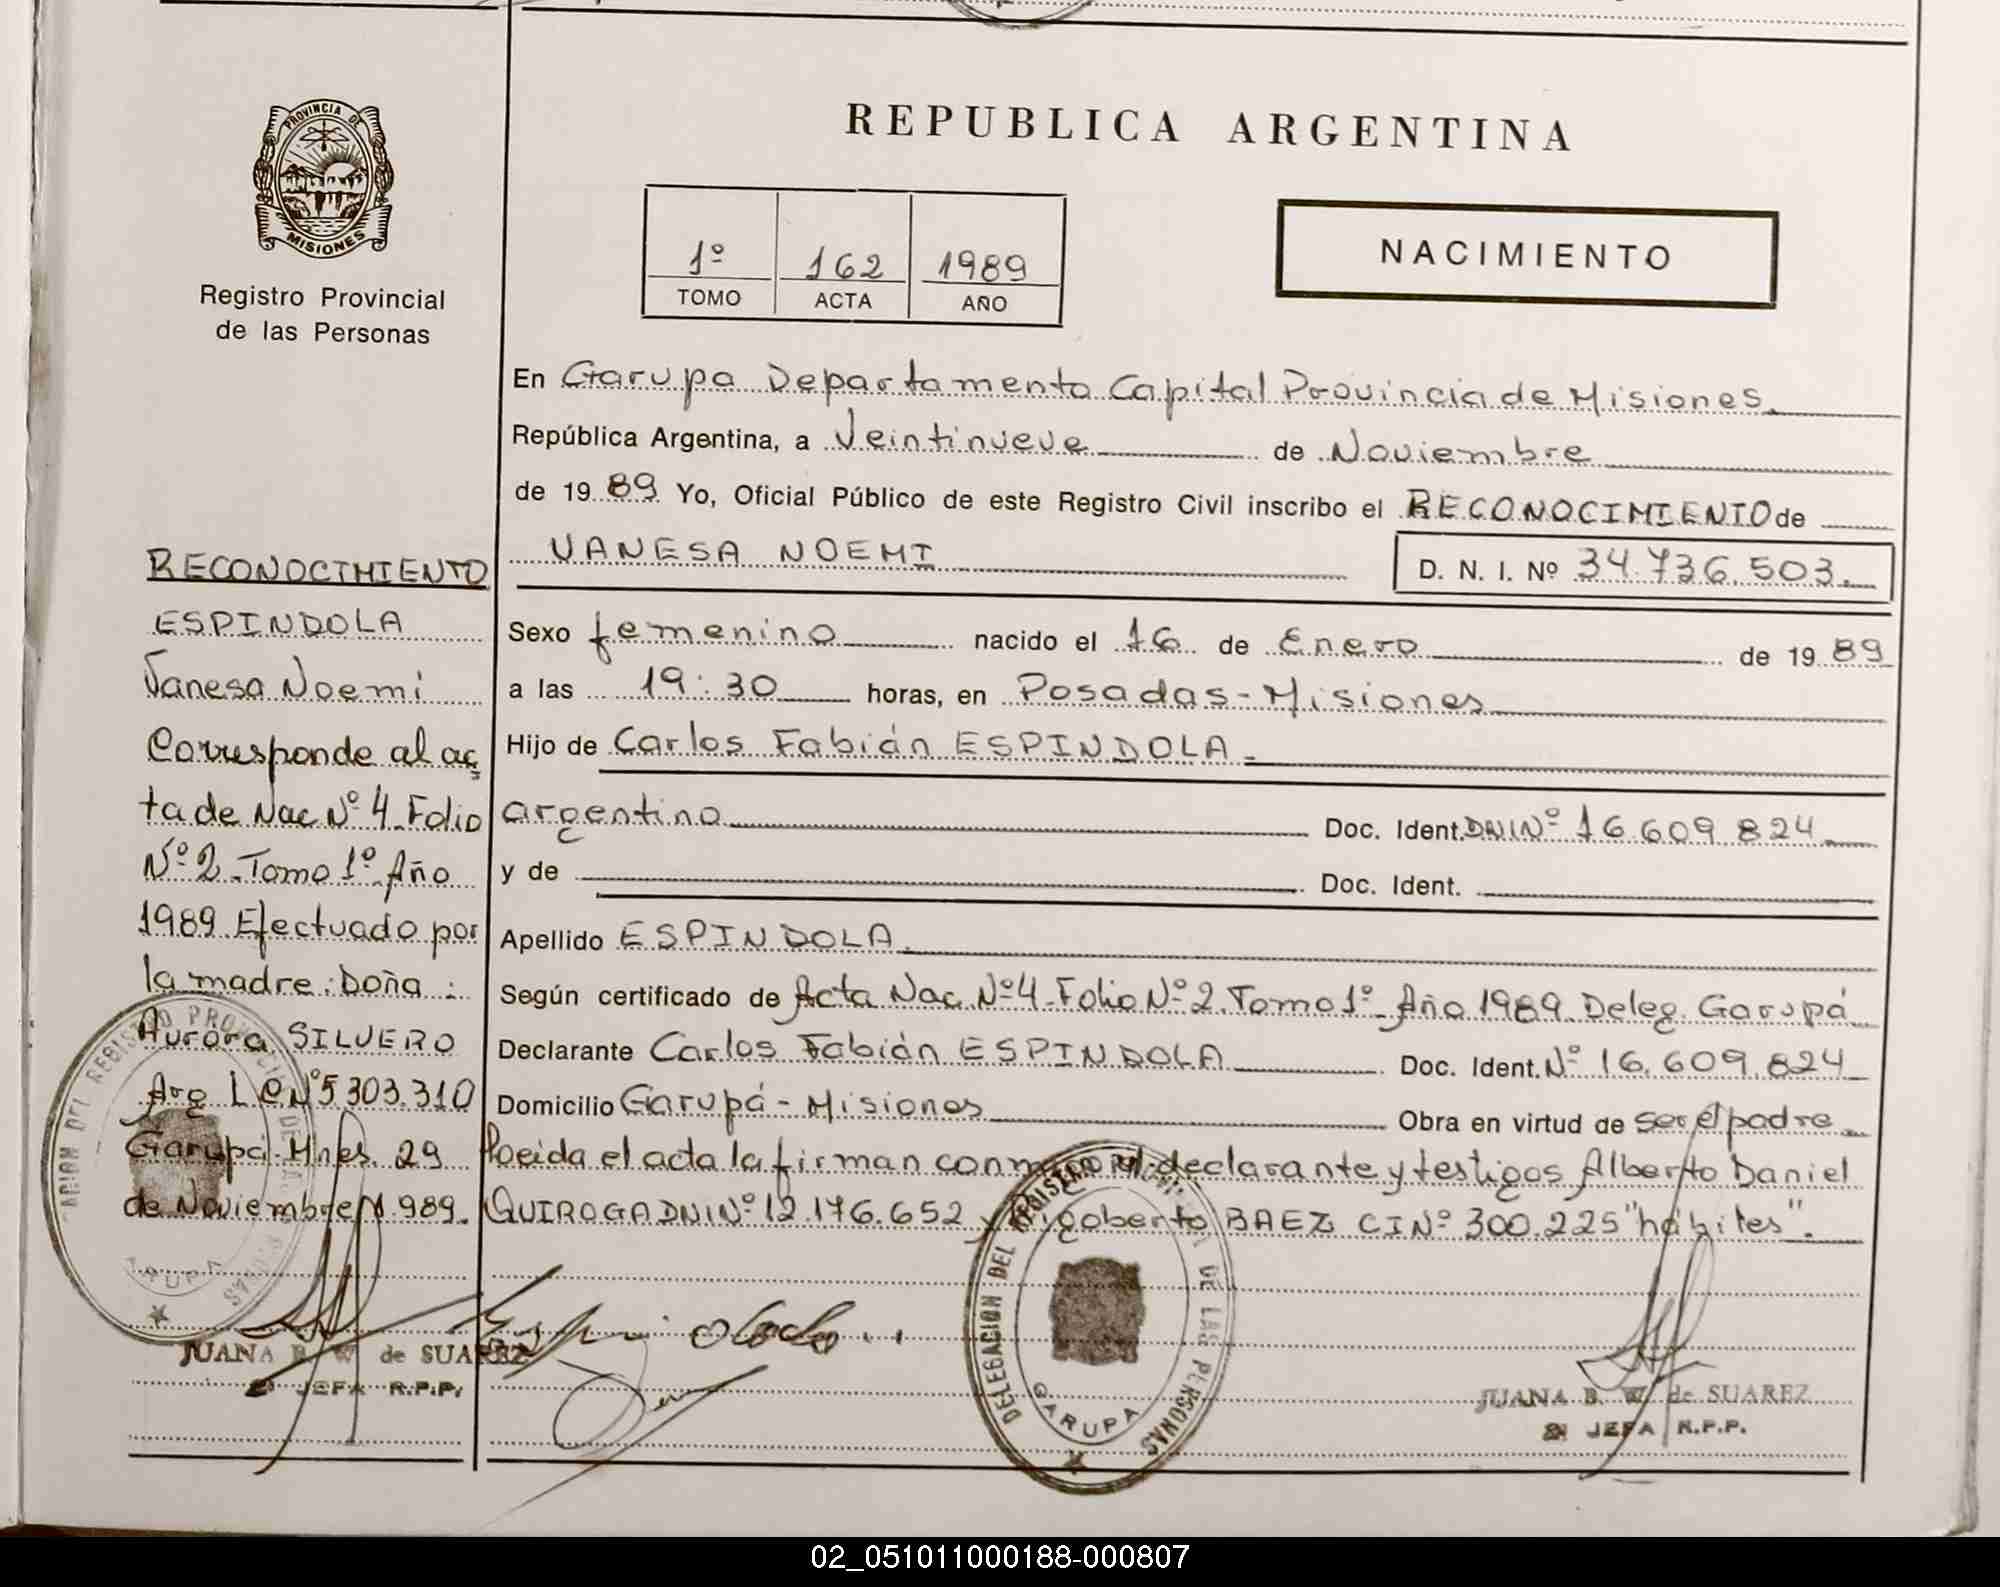 PROVINCIA DE
MISIONES
Registro Provincial
de las Personas
REPUBLICA ARGENTINA
1º 162 1989
TOMO ACTA AÑO
NACIMIENTO
En Garupa Departamento Capital Provincia de Misiones.
República Argentina, a Veintinueve de Noviembre
de 19 89 Yo, Oficial Público de este Registro Civil inscribo el RECONOCIMIENTO de
VANESA NOEMI D. N. I. Nº 34.736.503.
Sexo femenino nacido el 16 de Enero de 19 89
a las 19:30 horas, en Posadas-Misiones
Hijo de Carlos Fabián ESPINDOLA.
argentino Doc. Ident. DNI Nº 16.609.824
y de Doc. Ident.
Apellido ESPINDOLA.
Según certificado de Acta Nac. Nº 4. Folio Nº 2. Tomo 1º. Año 1989. Deleg. Garupá
Declarante Carlos Fabián ESPINDOLA Doc. Ident. Nº 16.609.824
Domicilio Garupá - Misiones Obra en virtud de ser el padre
Loeida el acta la firman conmigo el declarante y testigos Alberto Daniel
QUIROGA DNI Nº 12.176.652 y Rigoberto BAEZ CI Nº 300.225 "hábiles".
RECONOCIMIENTO
ESPINDOLA
Vanesa Noemi
Corresponde al ac
ta de Nac Nº 4. Folio
Nº 2. Tomo 1º. Año
1989. Efectuado por
la madre: Doña :
Aurora SILVERO
Arg L C Nº 5.303.310
Garupá. Mnes. 29
de Noviembre 1.989.
JUANA B. W. de SUAREZ
JEFA R.P.P.
DELEGACION DEL REGISTRO PROVINCIAL DE LAS PERSONAS
GARUPA
JUANA B. W. de SUAREZ
JEFA R.P.P.
02_051011000188-000807